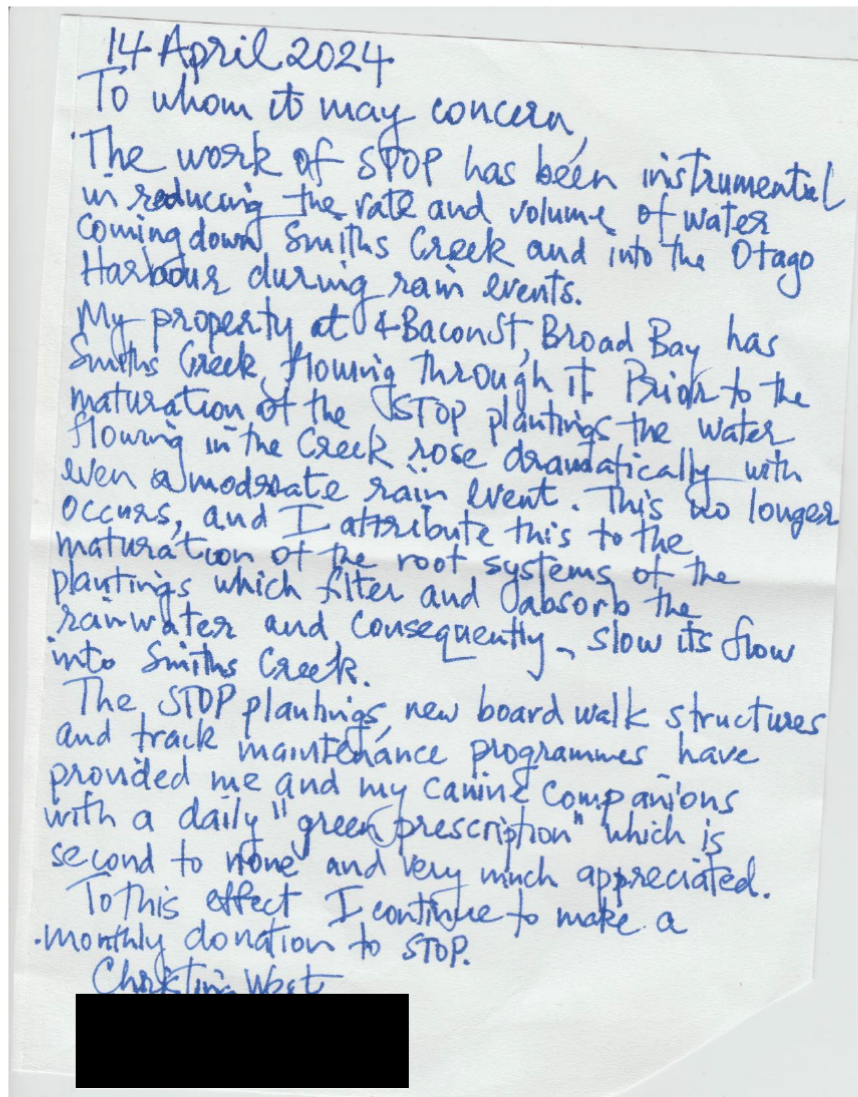 14 April 2024
To whom it may concern,
The work of STOP has been instrumental
in reducing the rate and volume of water
coming down Smiths Creek and into the Otago
Harbour during rain events.
My property at 4 Bacon St, Broad Bay has
Smiths Creek, flowing through it. Prior to the
maturation of the STOP plantings the water
flowing in the Creek rose dramatically with
even a moderate rain event. This no longer
occurs, and I attribute this to the
maturation of the root systems of the
plantings which filter and absorb the
rainwater and consequently, slow its flow
into Smiths Creek.
The STOP plantings, new board walk structures
and track maintenance programmes have
provided me and my canine companions
with a daily "green prescription" which is
second to none and very much appreciated.
To this effect I continue to make a
monthly donation to STOP.
Christina West